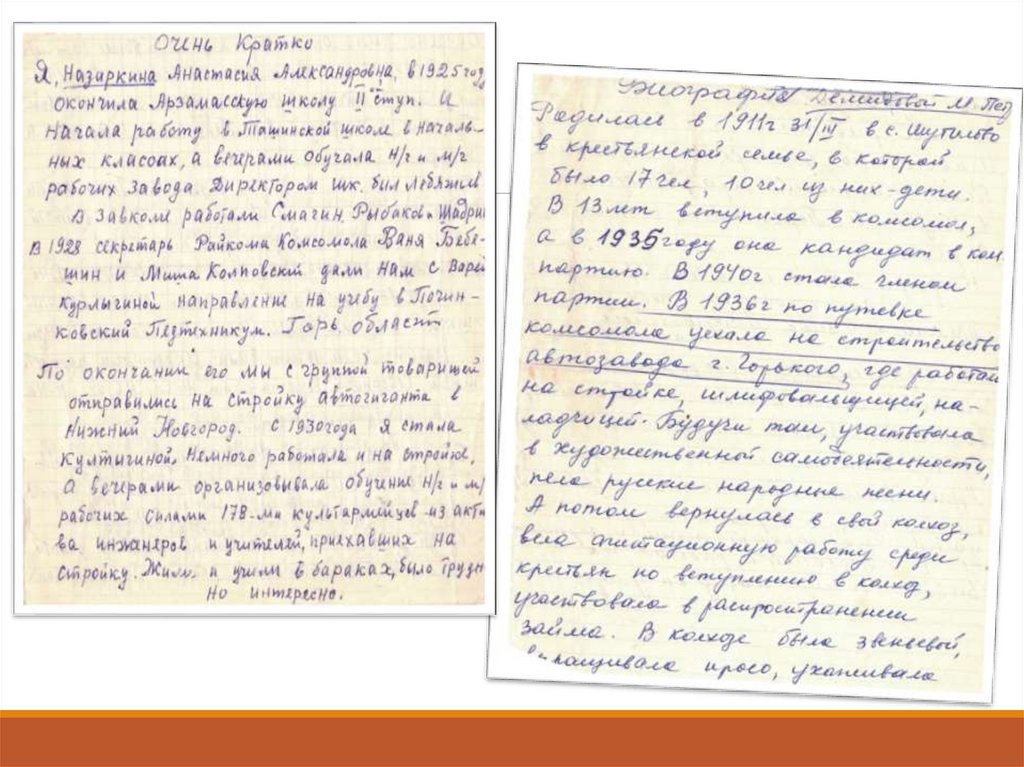 Очень Кратко
Я, Назаркина Анастасия Александровна, в 1925 году
окончила Арзамасскую школу II ступ. и
начала работу в Ташинской школе в началь-
ных классах, а вечерами обучала н/г и м/г
рабочих завода. Директором шк. был Лебяжьев
В завкоме работали Смагин, Рыбаков и Шадрин
В 1928 секретарь Райкома Комсомола Ваня Бебе-
шин и Миша Колповский дали нам с Варей
Курлыгиной направление на учебу в Почин-
ковский Педтехникум. Горь. област
По окончании его мы с группой товарищей
отправились на стройку автогиганта в
Нижний Новгород. С 1930 года я стала
Култыгиной. Немного работала и на стройке,
а вечерами организовывала обучение н/г и м/
рабочих силами 178-ми культармейцев из акти
ва инжанеров и учителей, приехавших на
стройку. Жили и учили в бараках, было трудн
но интересно.
Биография Демидовой М. Пет
Родилась в 1911г 31/III в с. Шутилово
в крестьянской семье, в которой
было 17 чел, 10 чел из них - дети.
В 13 лет вступила в комсомол,
а в 1935 году она кандидат в ком.
партию. В 1940г стала членом
партии. В 1936г по путевке
комсомола уехала на строительство
автозавода г. Горького, где работала
на стройке, шлифовальщицей, на-
ладчицей. Будучи там, участвовала
в художественной самодеятельности,
пела русские народные песни.
А потом вернулась в свой колхоз,
вела агитационную работу среди
крестьян по вступлению в колхоз,
участвовала в распространении
займа. В колхозе была звеньевой,
просо, ухаживала